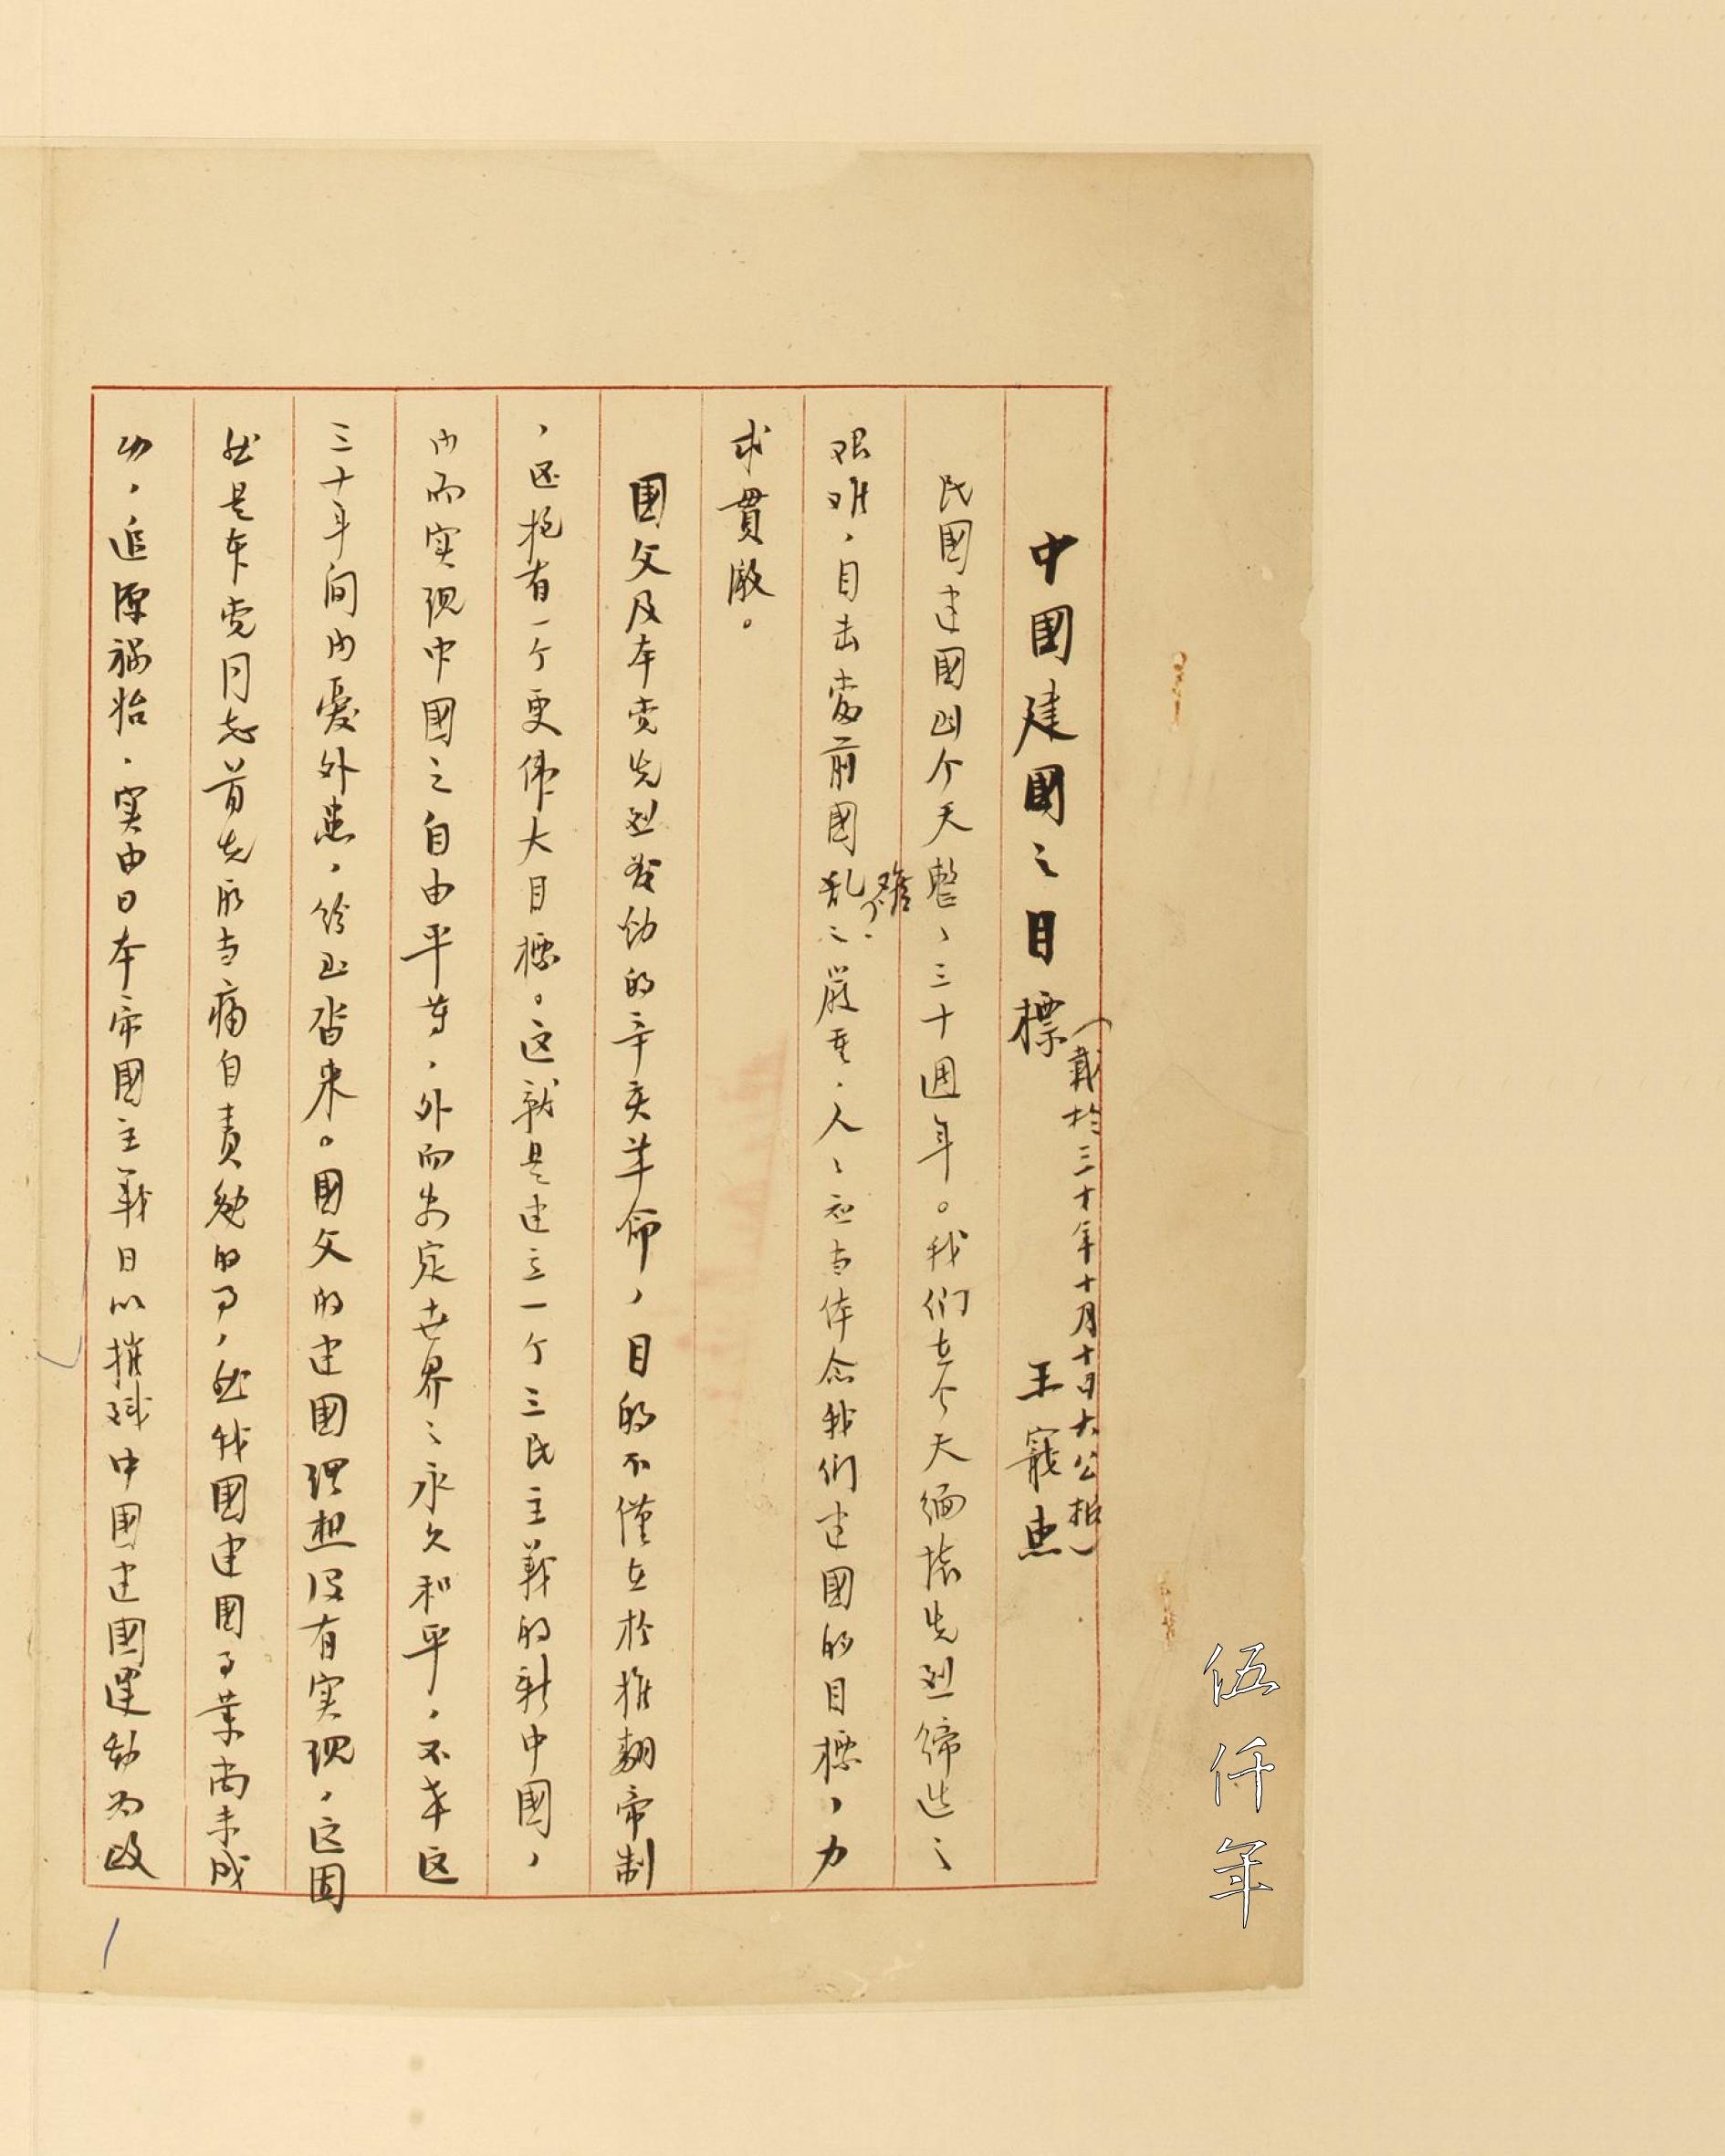 中國建國之目標
（載於三十年十月十日大公报）
王寵惠
民國建國到今天整、三十週年。我们在今天緬懷先烈締造之
艰难，目击當前國乱之嚴重，人、应当体念我们建國的目標，力
难？
求貫澈。
國父及本党先烈发动的辛亥革命，目的不僅在於推翻帝制
，还抱有一个更偉大目標。这就是建立一个三民主義的新中國，
内而实现中國之自由平等，外而安定世界之永久和平，不幸这
三十年间内憂外患，纷至沓来。國父的建國理想没有实现，这固
然是本党同志首先所当痛自责勉的事，然我國建國事業尚未成
功，追源祸始，实由日本帝國主義日以摧残中國建國運动为政
伍仟年